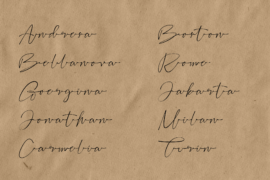 Andrera
Bellanova
Georgina
Jonathan
Carmelia
Boston
Rome
Jakarta
Milan
Turin